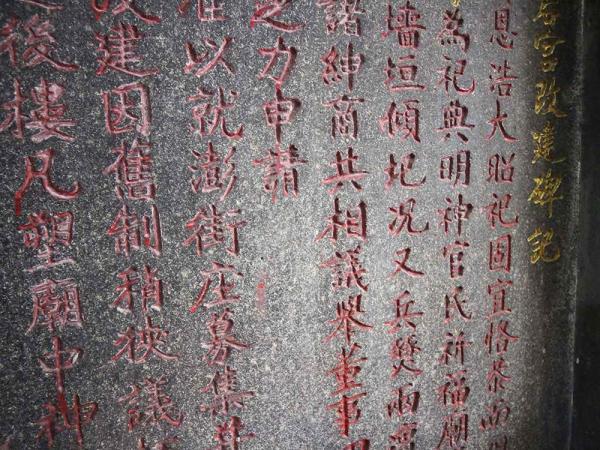 后宮改建碑記
恩浩大昭祀固宜恪恭而
為祀典明神官民祈福廟
墻垣傾圮况又兵燹雨
諸紳商共相議舉董事
之力申請
准以就澎街庄募集
改建因舊制稍狹議
後樓凡塑廟中神